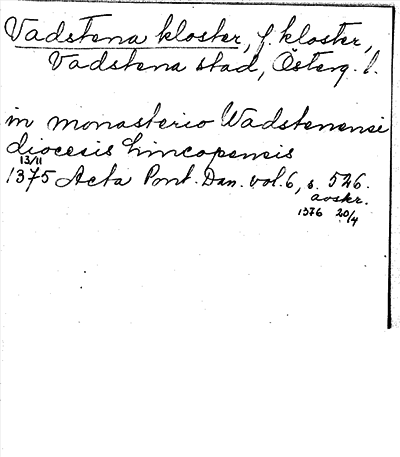 Vadstena kloster, f. kloster,
Vadstena stad, Österg. l.
in monasterio Wadstenensi
diocesis Lincopensis
13/11
1375 Acta Pont. Dan. vol. 6, s. 526.
avskr.
1376 20/4